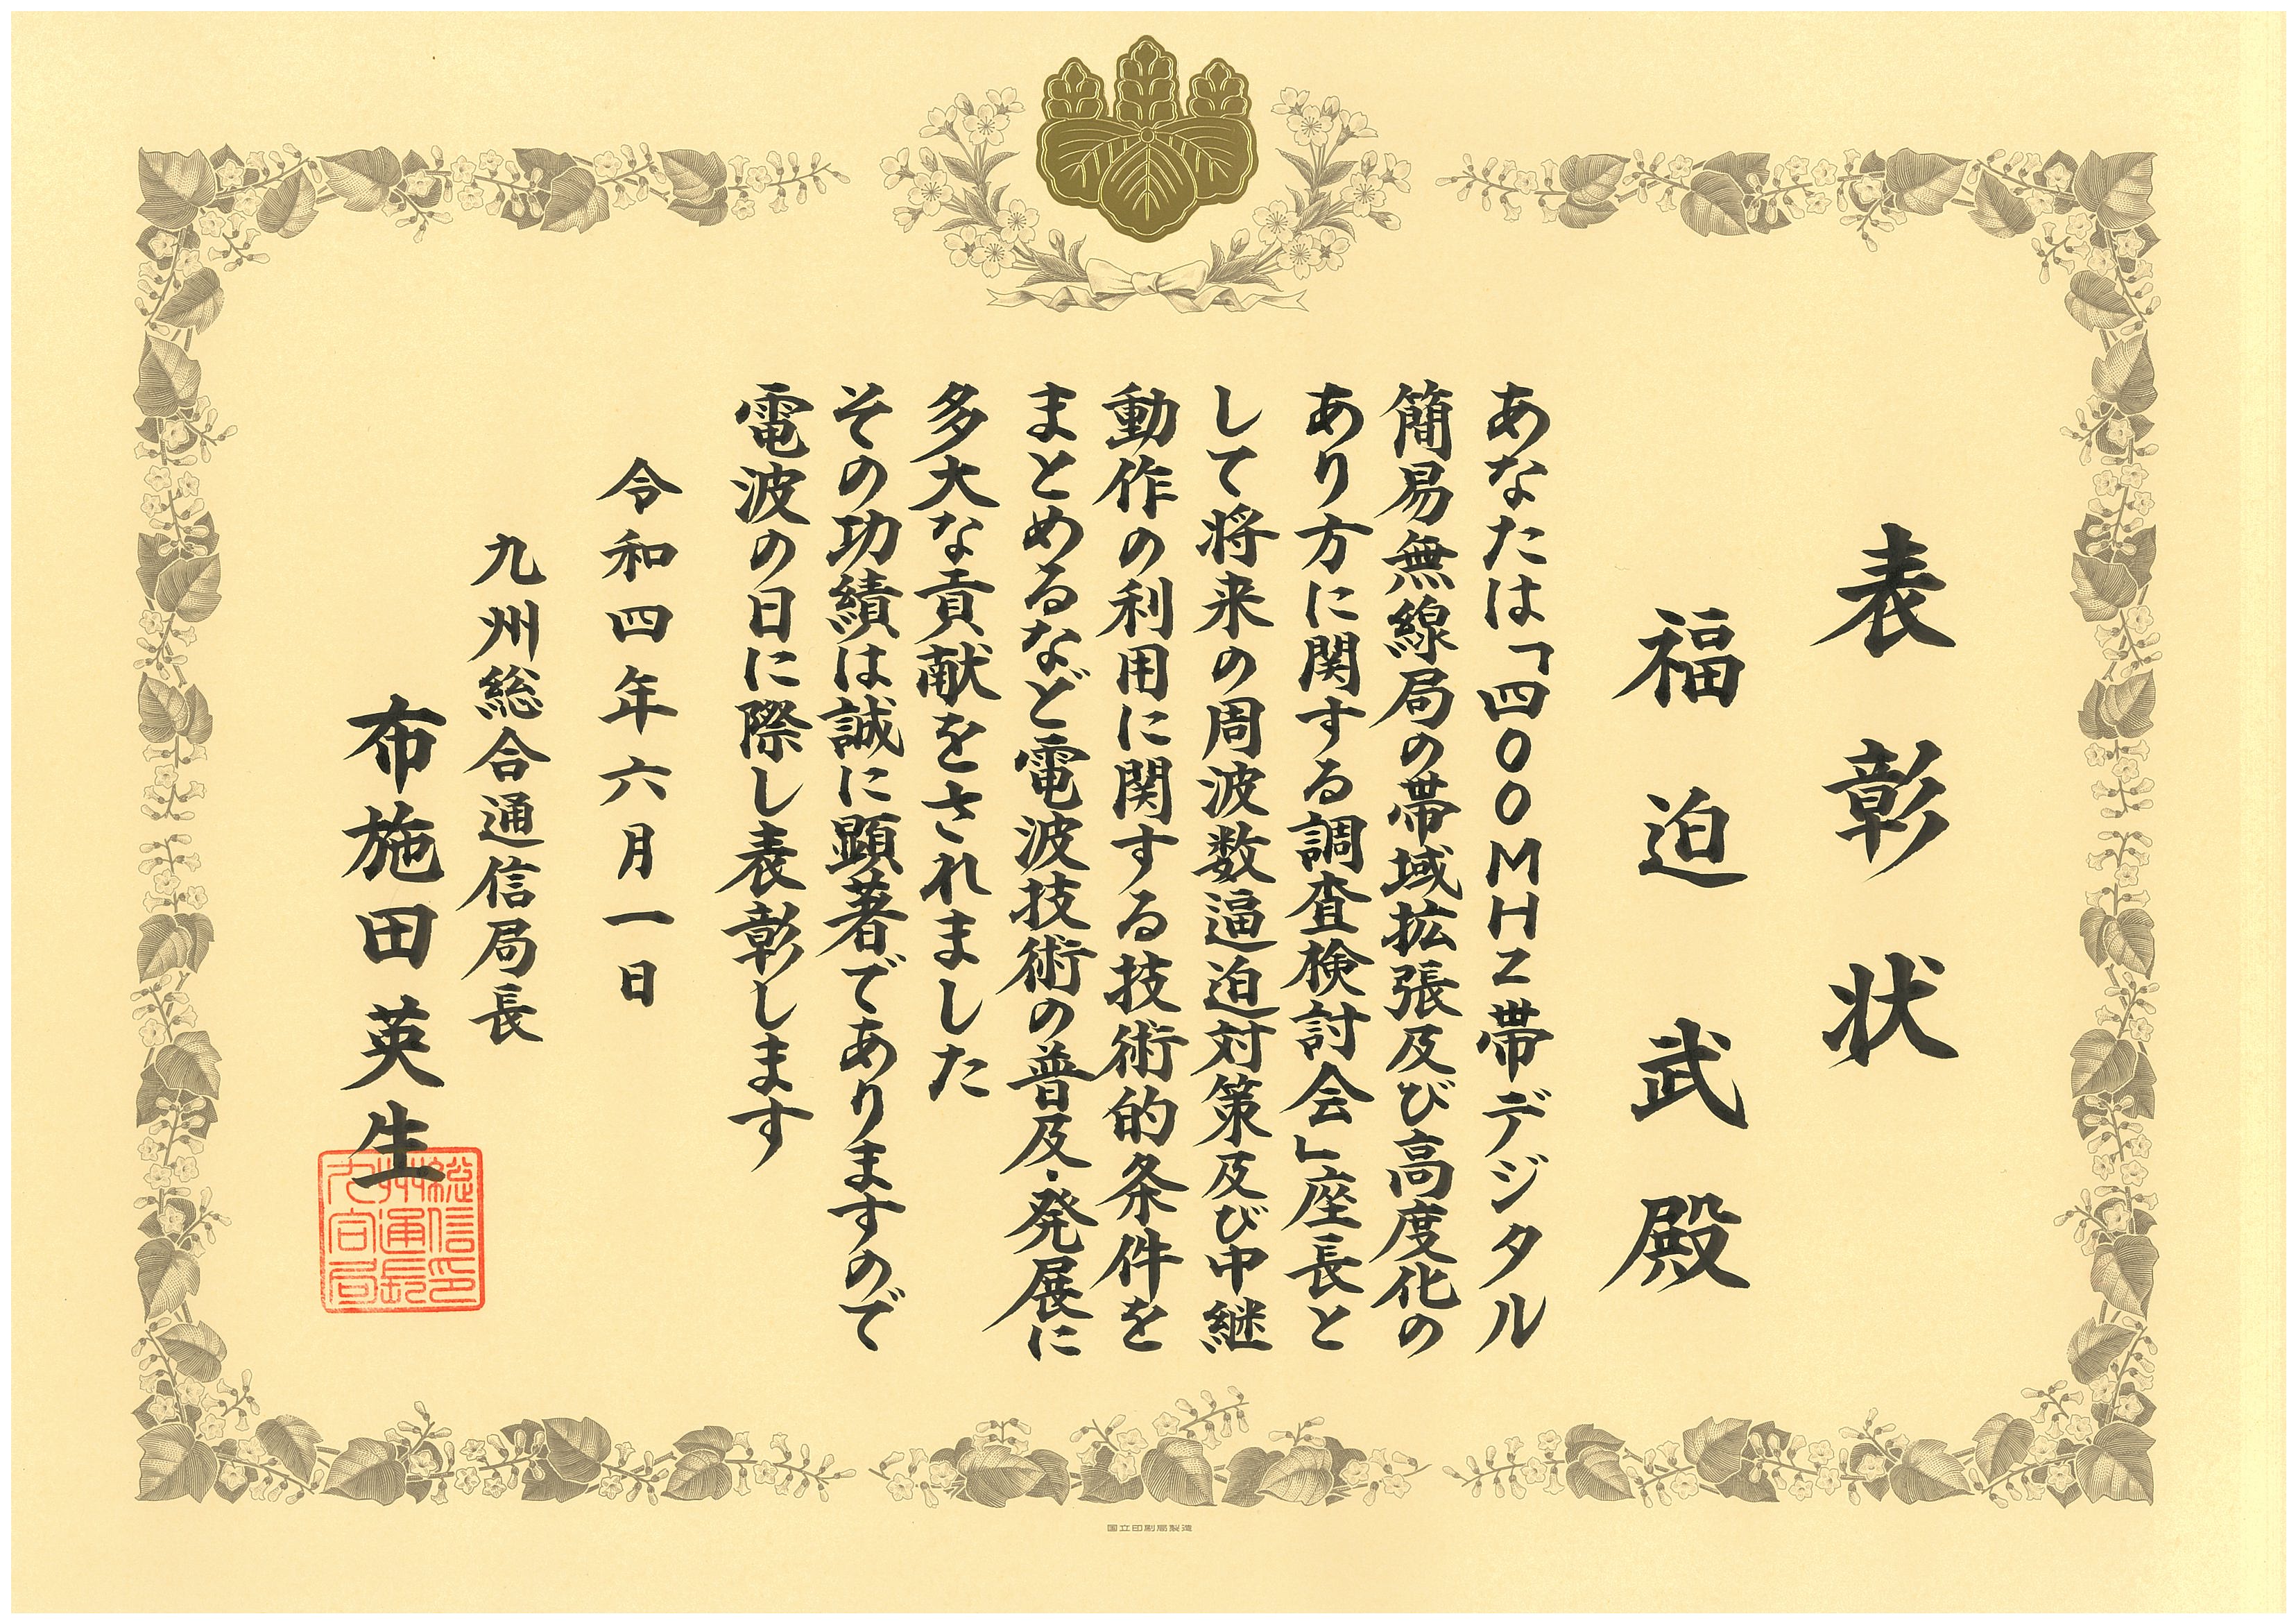 表彰状
福迫武殿
あなたは「四〇〇MHz帯デジタル
簡易無線局の帯域拡張及び高度化の
あり方に関する調査検討会」座長と
して将来の周波数逼迫対策及び中継
動作の利用に関する技術的条件を
まとめるなど電波技術の普及・発展に
多大な貢献をされました
その功績は誠に顕著でありますので
電波の日に際し表彰します
令和四年六月一日
九州総合通信局長
布施田英生
国立印刷局製造